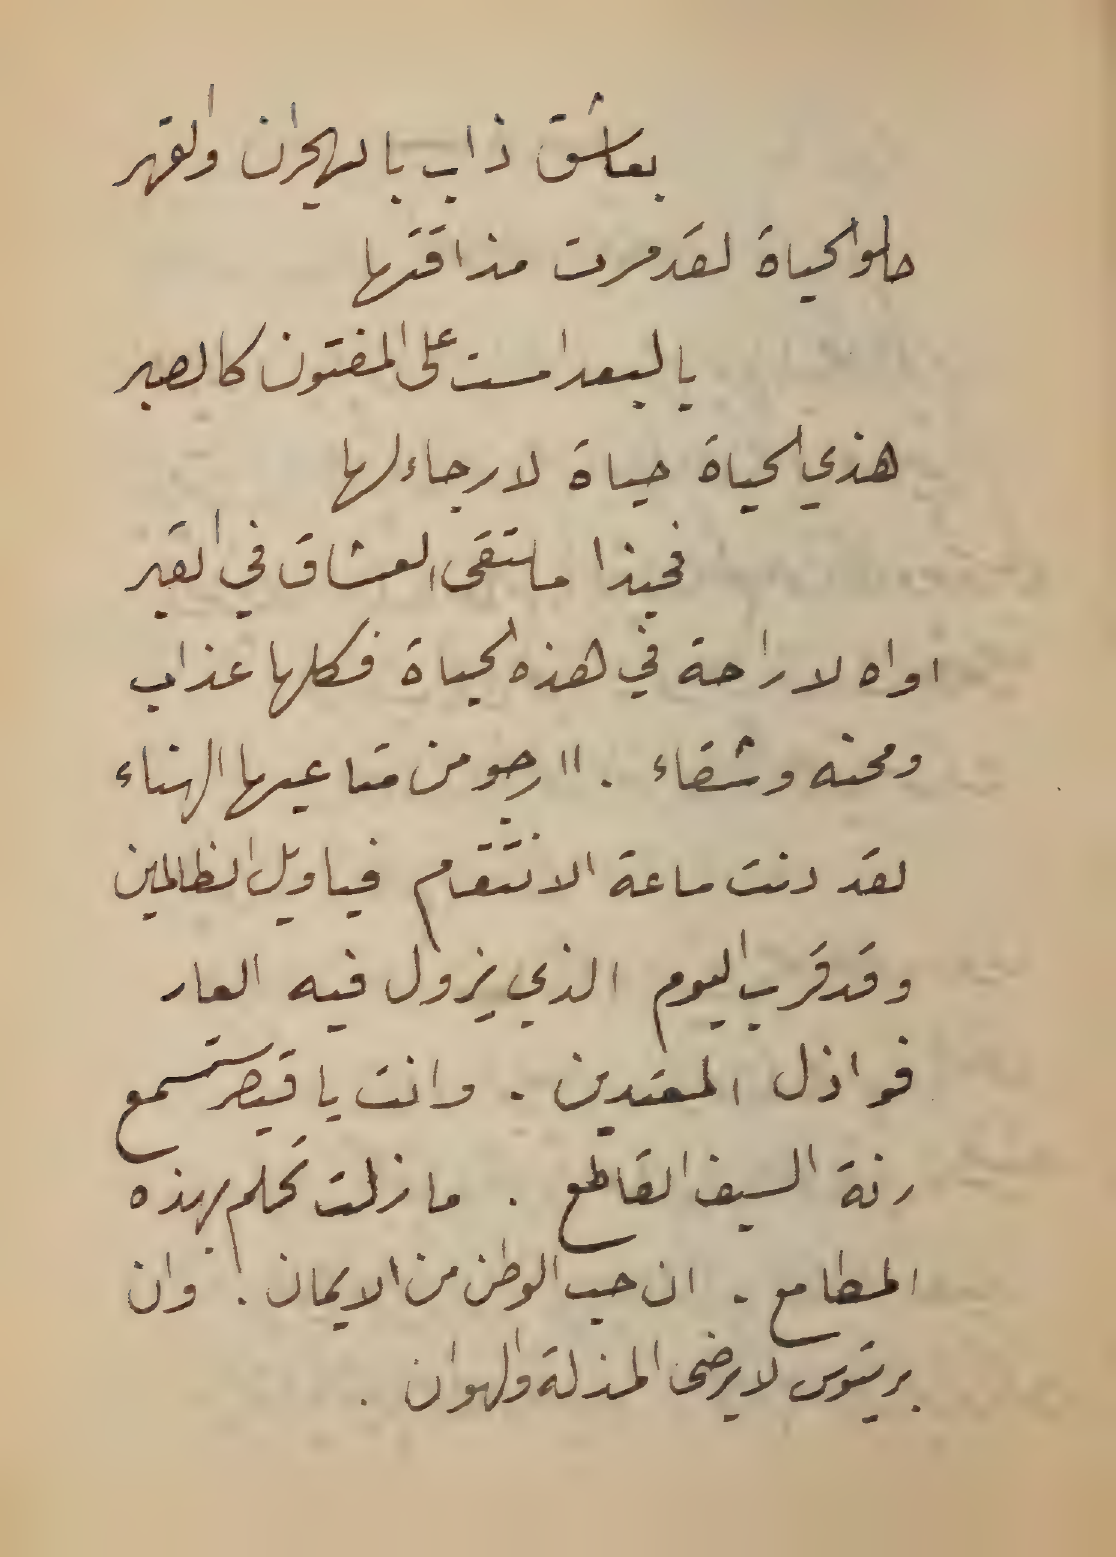 بعاشق ذاب بالهجران والقهر
حلو الحياة لقد مرت مذاقتها
بالبعد امست على المفتون كالصبر
هذي الحياة حياة لا رجاء لها
فحبذا ملتقى العشاق في القبر
اواه لا راحة في هذه الحياة فكلها عذاب
ومحنه وشقاء . اارجو من متاعبها الهناء
لقد دنت ساعة الانتقام فيا ويل الظالمين
وقد قرب اليوم الذي يزول فيه العار
فوا ذل المعتدين . وانت يا قيصر ستسمع
رنة السيف القاطع . ما زلت تحلم بهذه
المطامع . ان حب الوطن من الايمان . وان
بريتوس لا يرضى المذلة والهوان .